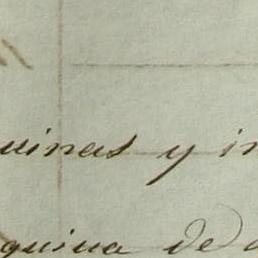 uinas y in
quina de